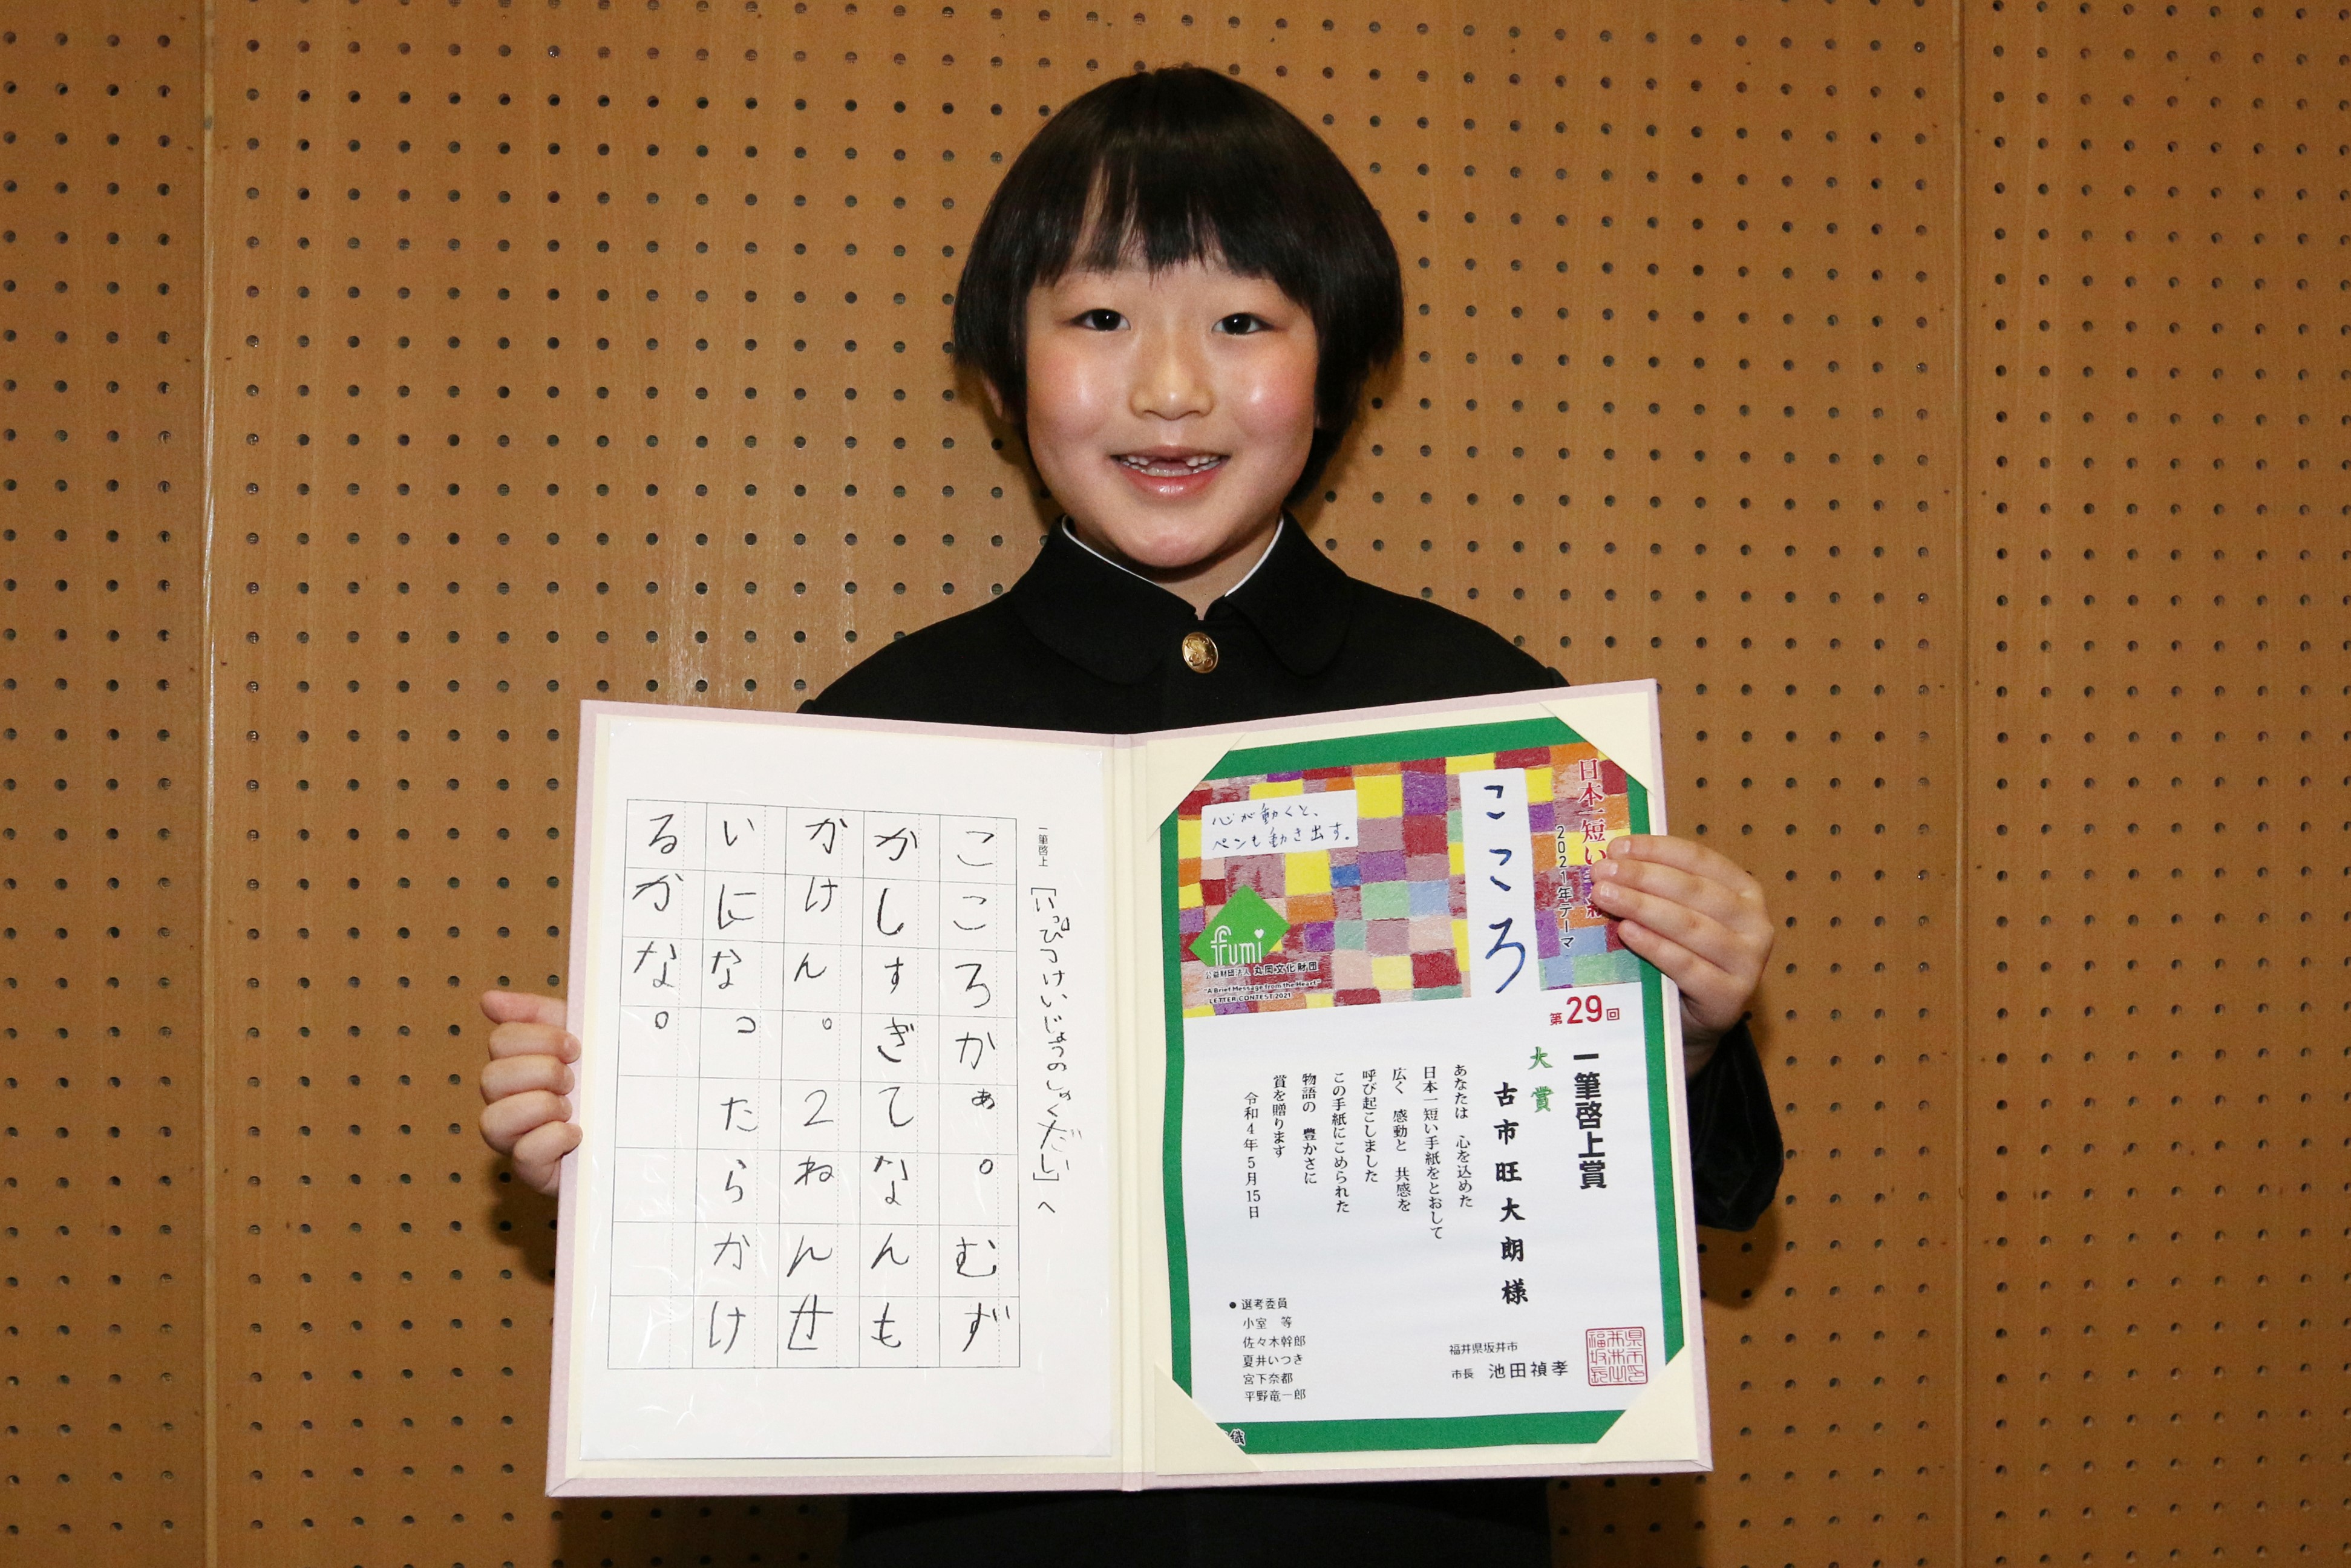 一筆啓上
「いっぴつけいじょうのしゅくだい」へ
こころかぁ。むず
かしすぎてなんも
かけん。2ねんせ
いになったらかけ
るかな。
日本一短い手紙
2021年テーマ
こころ
心が動くと、
ペンも動き出す。
fumi
公益財団法人 丸岡文化財団
"A Brief Message from the Heart"
LETTER CONTEST 2021
第29回
一筆啓上賞
大賞
古市旺大朗様
あなたは 心を込めた
日本一短い手紙をとおして
広く 感動と 共感を
呼び起こしました
この手紙にこめられた
物語の 豊かさに
賞を贈ります
令和4年5月15日
●選考委員
小室 等
佐々木幹郎
夏井いつき
宮下奈都
平野竜一郎
福井県坂井市
市長 池田禎孝
織